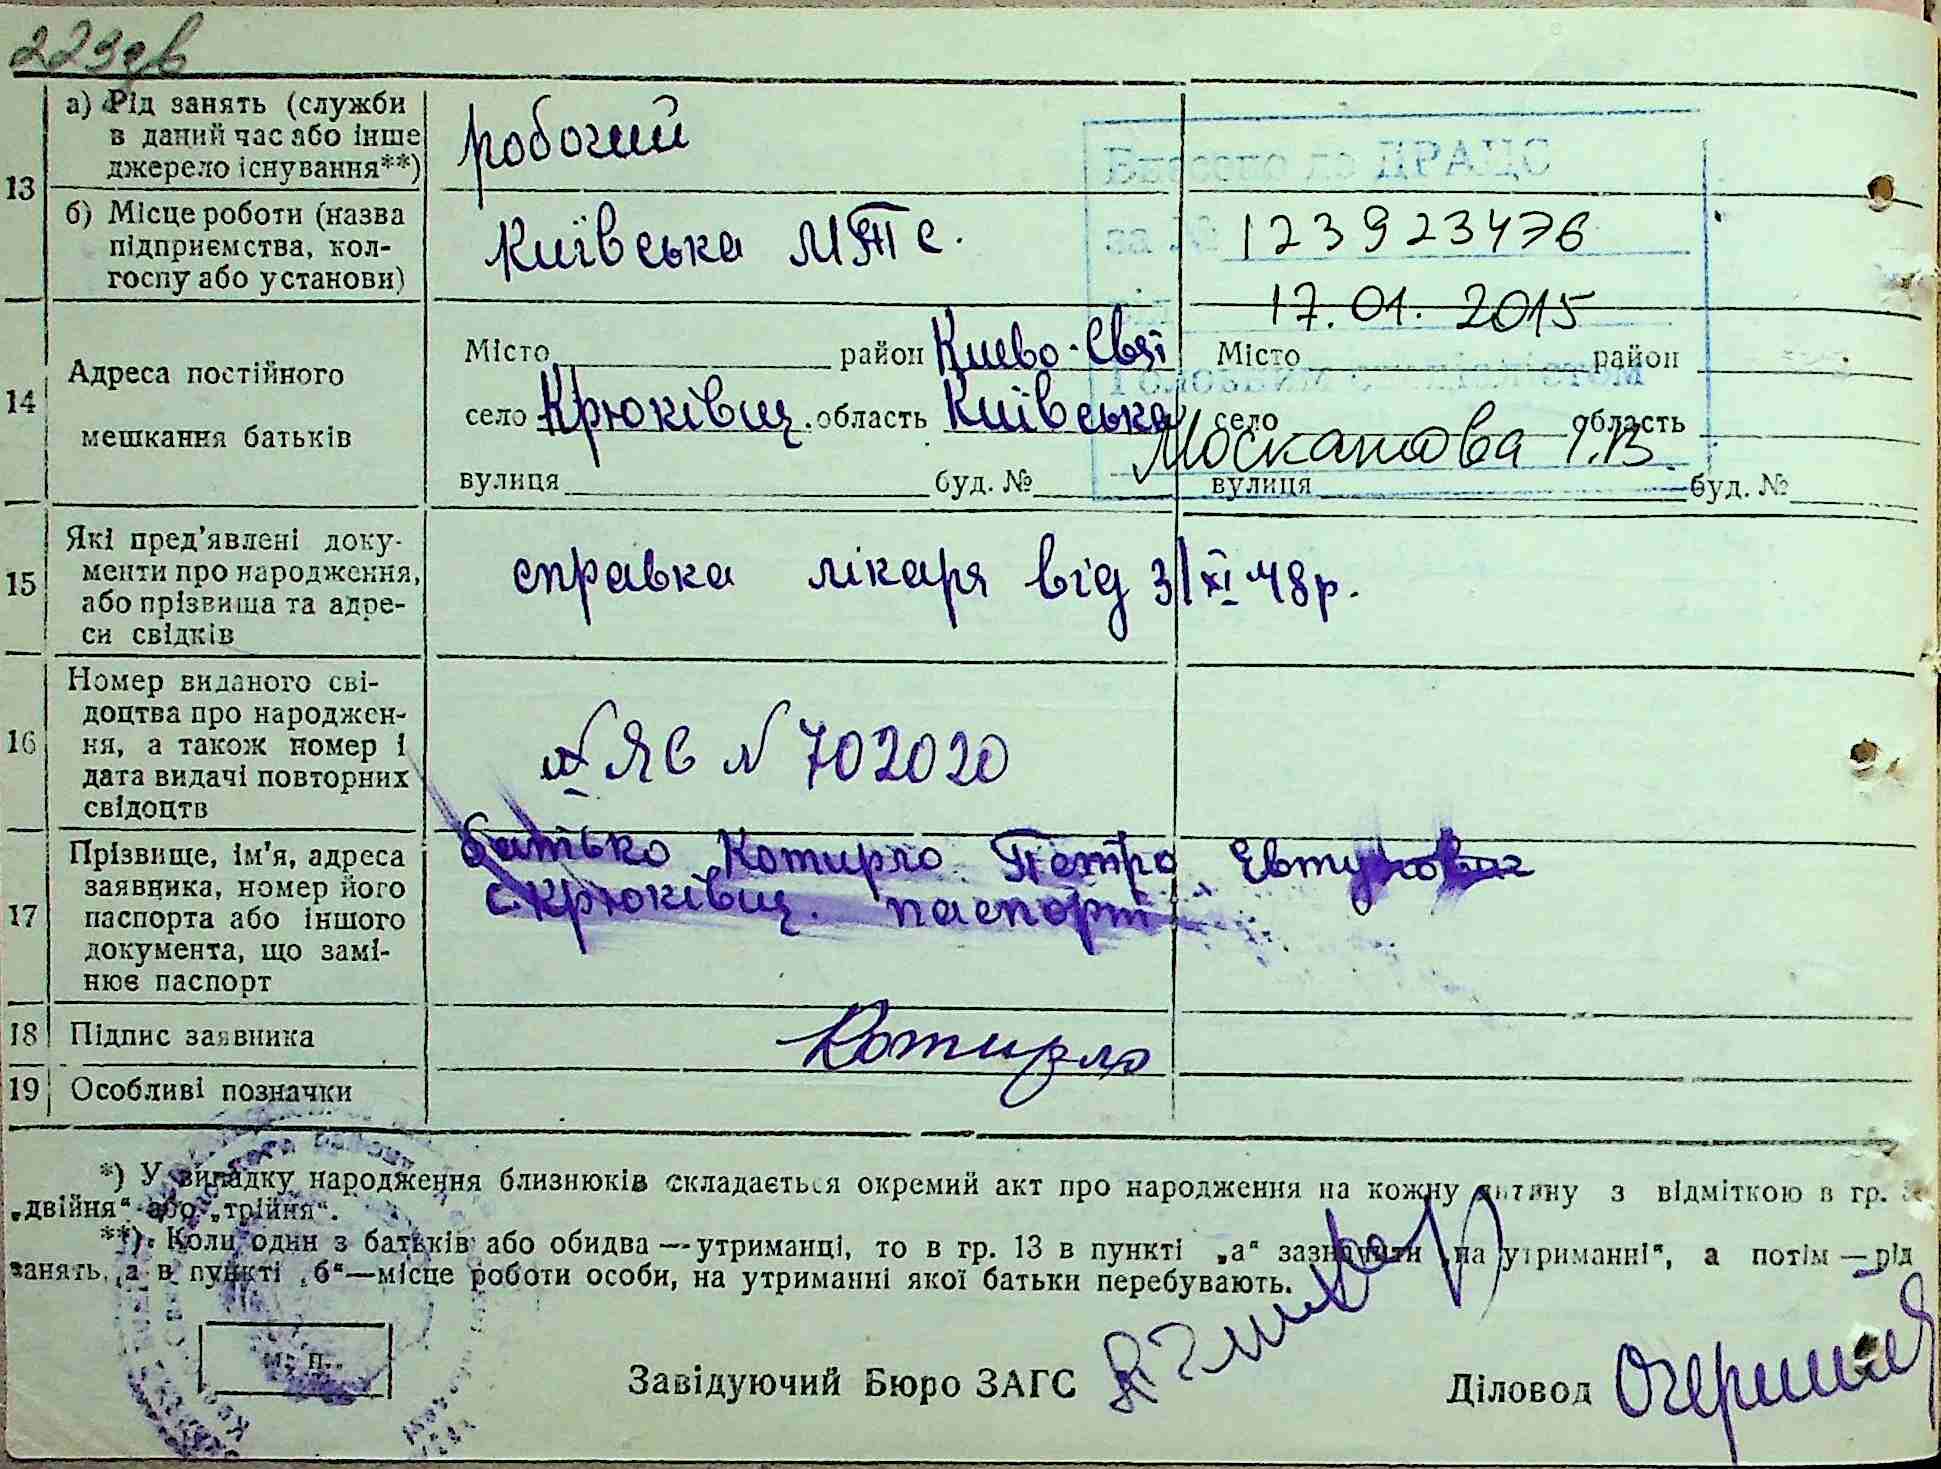 229зв
13 а) Рід занять (служби в даний час або інше джерело існування**)
робочий
Внесено до ДРАЦС
б) Місце роботи (назва підприємства, колгоспу або установи)
Київська МТС.
за № 123923476
17.01.2015
14 Адреса постійного мешкання батьків
Місто район Києво-Свят Місто район
село Крюківщ. область Київська село область
Москатова І.В.
вулиця буд. № вулиця буд. №
15 Які пред'явлені документи про народження, або прізвища та адреси свідків
справка лікаря від 3/XI 48р.
16 Номер виданого свідоцтва про народження, а також номер і дата видачі повторних свідоцтв
ЯЄ N 702020
17 Прізвище, ім'я, адреса заявника, номер його паспорта або іншого документа, що замінює паспорт
батько Котирло Петро Евтухович
с. Крюківщ. паспорт
18 Підпис заявника
Котирло
19 Особливі позначки
*) У випадку народження близнюків складається окремий акт про народження на кожну дитину з відміткою в гр.
„двійня“ або „трійня“.
**) Коли один з батьків або обидва — утриманці, то в гр. 13 в пункті „а“ зазначити „на утриманні“, а потім — рід
занять, а в пункті „б“ — місце роботи особи, на утриманні якої батьки перебувають.
м. п.
Завідуючий Бюро ЗАГС
Діловод